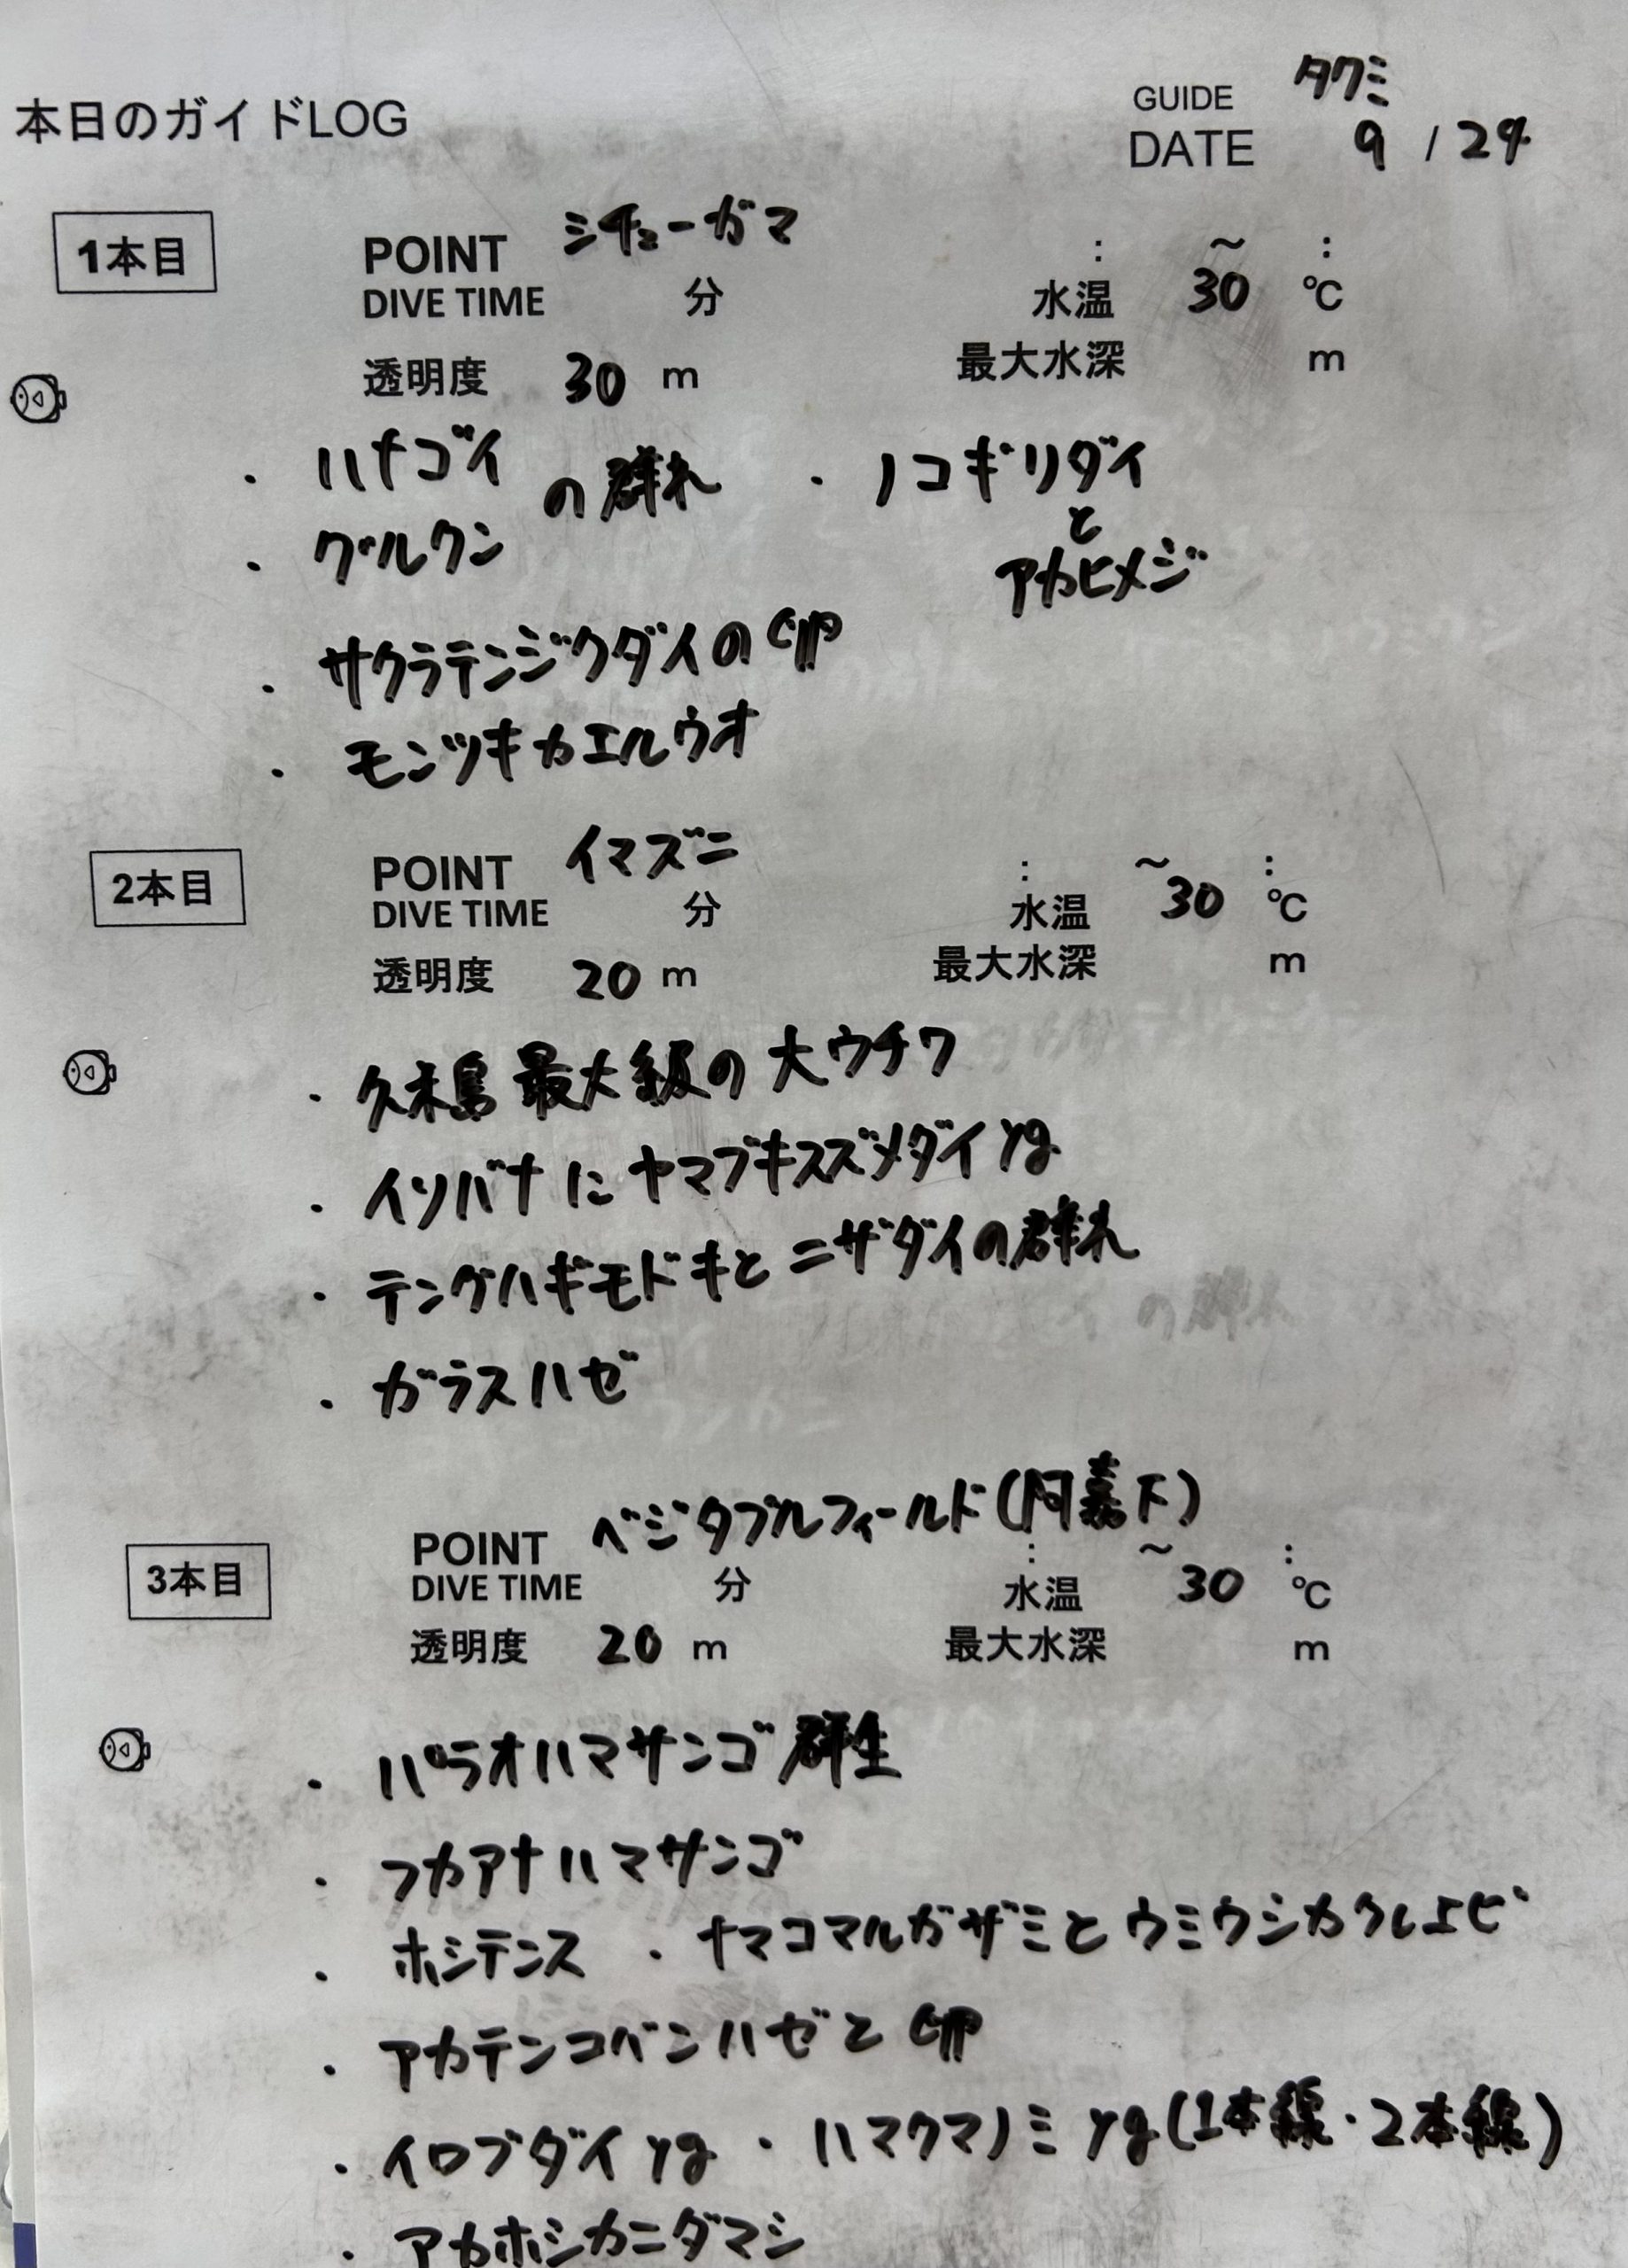 本日のガイドLOG
GUIDE タクミ
DATE 9 / 29
1本目
POINT シチューガマ : ～ :
DIVE TIME 分 水温 30 ℃
透明度 30 m 最大水深 m
・ハナゴイ
・グルクン の群れ
・ノコギリダイ
と
アカヒメジ
・サクラテンジクダイの卵
・モンツキカエルウオ
2本目
POINT イマズニ : ～ :
DIVE TIME 分 水温 30 ℃
透明度 20 m 最大水深 m
・久米島最大級の大ウチワ
・イソバナにヤマブキスズメダイyg
・テングハギモドキとニザダイの群れ
・ガラスハゼ
3本目
POINT ベジタブルフィールド(阿嘉下) : ～ :
DIVE TIME 分 水温 30 ℃
透明度 20 m 最大水深 m
・パラオハマサンゴ群生
・フカアナハマサンゴ
・ホシテンス ・ナマコマルガザミとウミウシカクレエビ
・アカテンコバンハゼと卵
・イロブダイyg ・ハマクマノミyg(1本線・2本線)
・アカホシカニダマシ